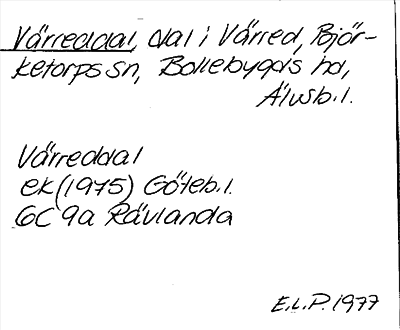 Värreddal, dal i Värred, Björ-
ketorps sn, Bollebygds hd,
Älvsb. l.
Värreddal
ek (1975) Göteb. l.
6C 9a Rävlanda
E.L.P. 1977